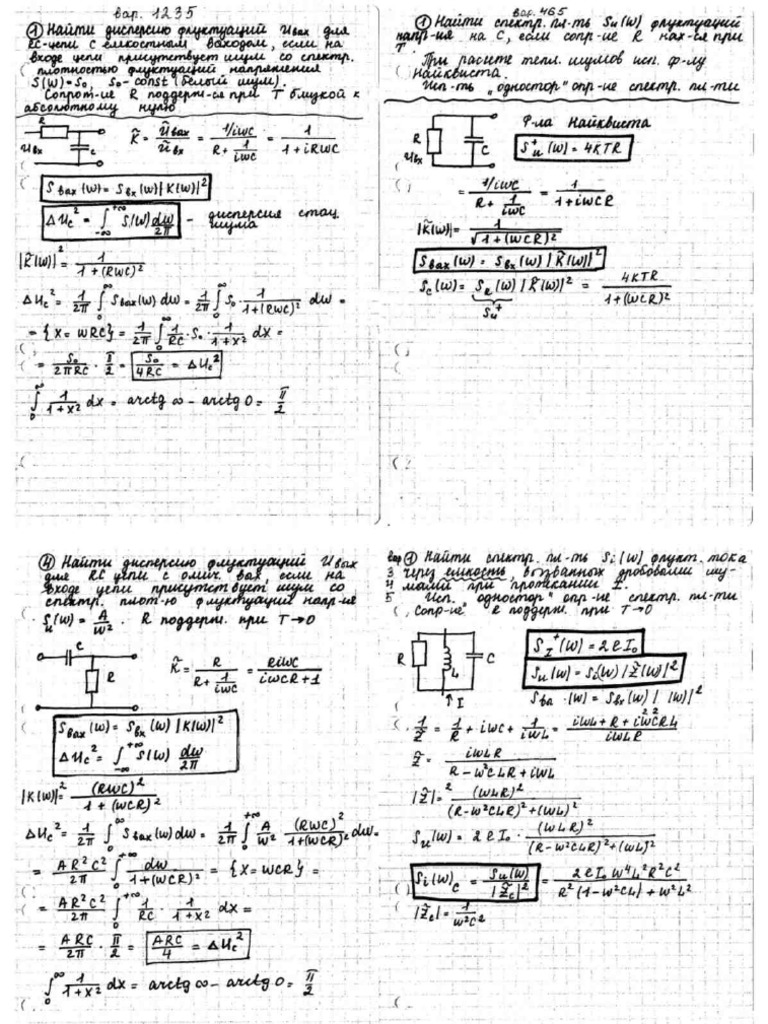 вар. 1235
① Найти дисперсию флуктуаций Uвых для
RC-цепи с емкостным выходом, если на
входе цепи присутствует шум со спектр.
плотностью флуктуаций напряжения
S(W)=S₀, S₀-const (белый шум).
Сопрот-ие R поддерж-ся при T близкой к
абсолютному нулю
R
Uвх
C
K̃ = Ũвых/Ũвх = (1/iωC)/(R + 1/iωC) = 1/(1+iRωC)
Sвых(ω) = Sвх(ω)|K(ω)|²
ΔUc² = ∫₋∞⁺∞ S(ω) dω/2π - дисперсия стац.
шума
|K̃(ω)|² = 1/(1+(RωC)²)
ΔUc² = 1/2π ∫₀^∞ Sвых(ω)dω = 1/2π ∫₀^∞ S₀ · 1/(1+(RωC)²) dω =
= {x=ωRC} = 1/2π ∫₀^∞ 1/RC · S₀ · 1/(1+x²) dx =
= S₀/2πRC · π/2 = S₀/4RC = ΔUc²
∫₀^∞ 1/(1+x²) dx = arctg ∞ - arctg 0 = π/2
вар. 465
① Найти спектр. пл-ть Su(ω) флуктуаций
напр-ия на C, если сопр-ие R нах-ся при
T
При расчете тепл. шумов исп. ф-лу
Найквиста.
Исп-ть "одностор" опр-ие спектр. пл-ти
R
Uвх
C
Ф-ла Найквиста
Su⁺(ω) = 4KTR
= (1/iωC)/(R + 1/iωC) = 1/(1+iωCR)
|K̃(ω)| = 1/√(1+(ωCR)²)
Sвых(ω) = Sвх(ω)|K̃(ω)|²
Sc(ω) = Sε(ω)|K̃(ω)|² = 4KTR/(1+(ωCR)²)
Su⁺
④ Найти дисперсию флуктуаций Uвых
для RC цепи с омич. вых, если на
входе цепи присутствует шум со
спектр. плот-ю флуктуаций напр-ие
Su(ω) = A/ω². R поддерж. при T→0
C
R
K̃ = R/(R + 1/iωC) = RiωC/(iωCR+1)
Sвых(ω) = Sвх(ω)|K(ω)|²
ΔUc² = ∫₋∞⁺∞ S(ω) dω/2π
|K(ω)|² = (RωC)²/(1+(ωCR)²)
ΔUc² = 1/2π ∫₀^∞ Sвых(ω)dω = 1/2π ∫₀^+∞ A/ω² · (RωC)²/(1+(ωCR)²) dω =
= AR²C²/2π ∫₀^+∞ dω/(1+(ωCR)²) = {x=ωCR} =
= AR²C²/2π ∫₀^+∞ 1/RC · 1/(1+x²) dx =
= ARC/2π · π/2 = ARC/4 = ΔUc²
∫₀^∞ 1/(1+x²) dx = arctg ∞ - arctg 0 = π/2
вар ① Найти спектр. пл-ть Si(ω) флукт. тока
3 через емкость, вызванных дробовыми шу-
4 мами при протекании I.
5 Исп. "одностор" опр-ие спектр. пл-ти
Сопр-ие R поддерж. при T→0
R
L
C
I
S_I⁺(ω) = 2eI₀
Su(ω) = Si(ω)|Z̃(ω)|²
Sвх(ω)| (ω)|²
1/Z̃ = 1/R + iωC + 1/iωL = (iωL + R + i²ω²CRL)/iωLR
Z̃ = iωLR/(R-ω²CLR+iωL)
|Z̃|² = (ωLR)²/((R-ω²CLR)²+(ωL)²)
Su(ω) = 2eI₀ · (ωLR)²/((R-ω²CLR)²+(ωL)²)
Si(ω)c = Su(ω)/|Z̃c|² = 2eI₀ω⁴L²R²C²/(R²(1-ω²CL)+ω²L²)
|Z̃c| = 1/ω²C²